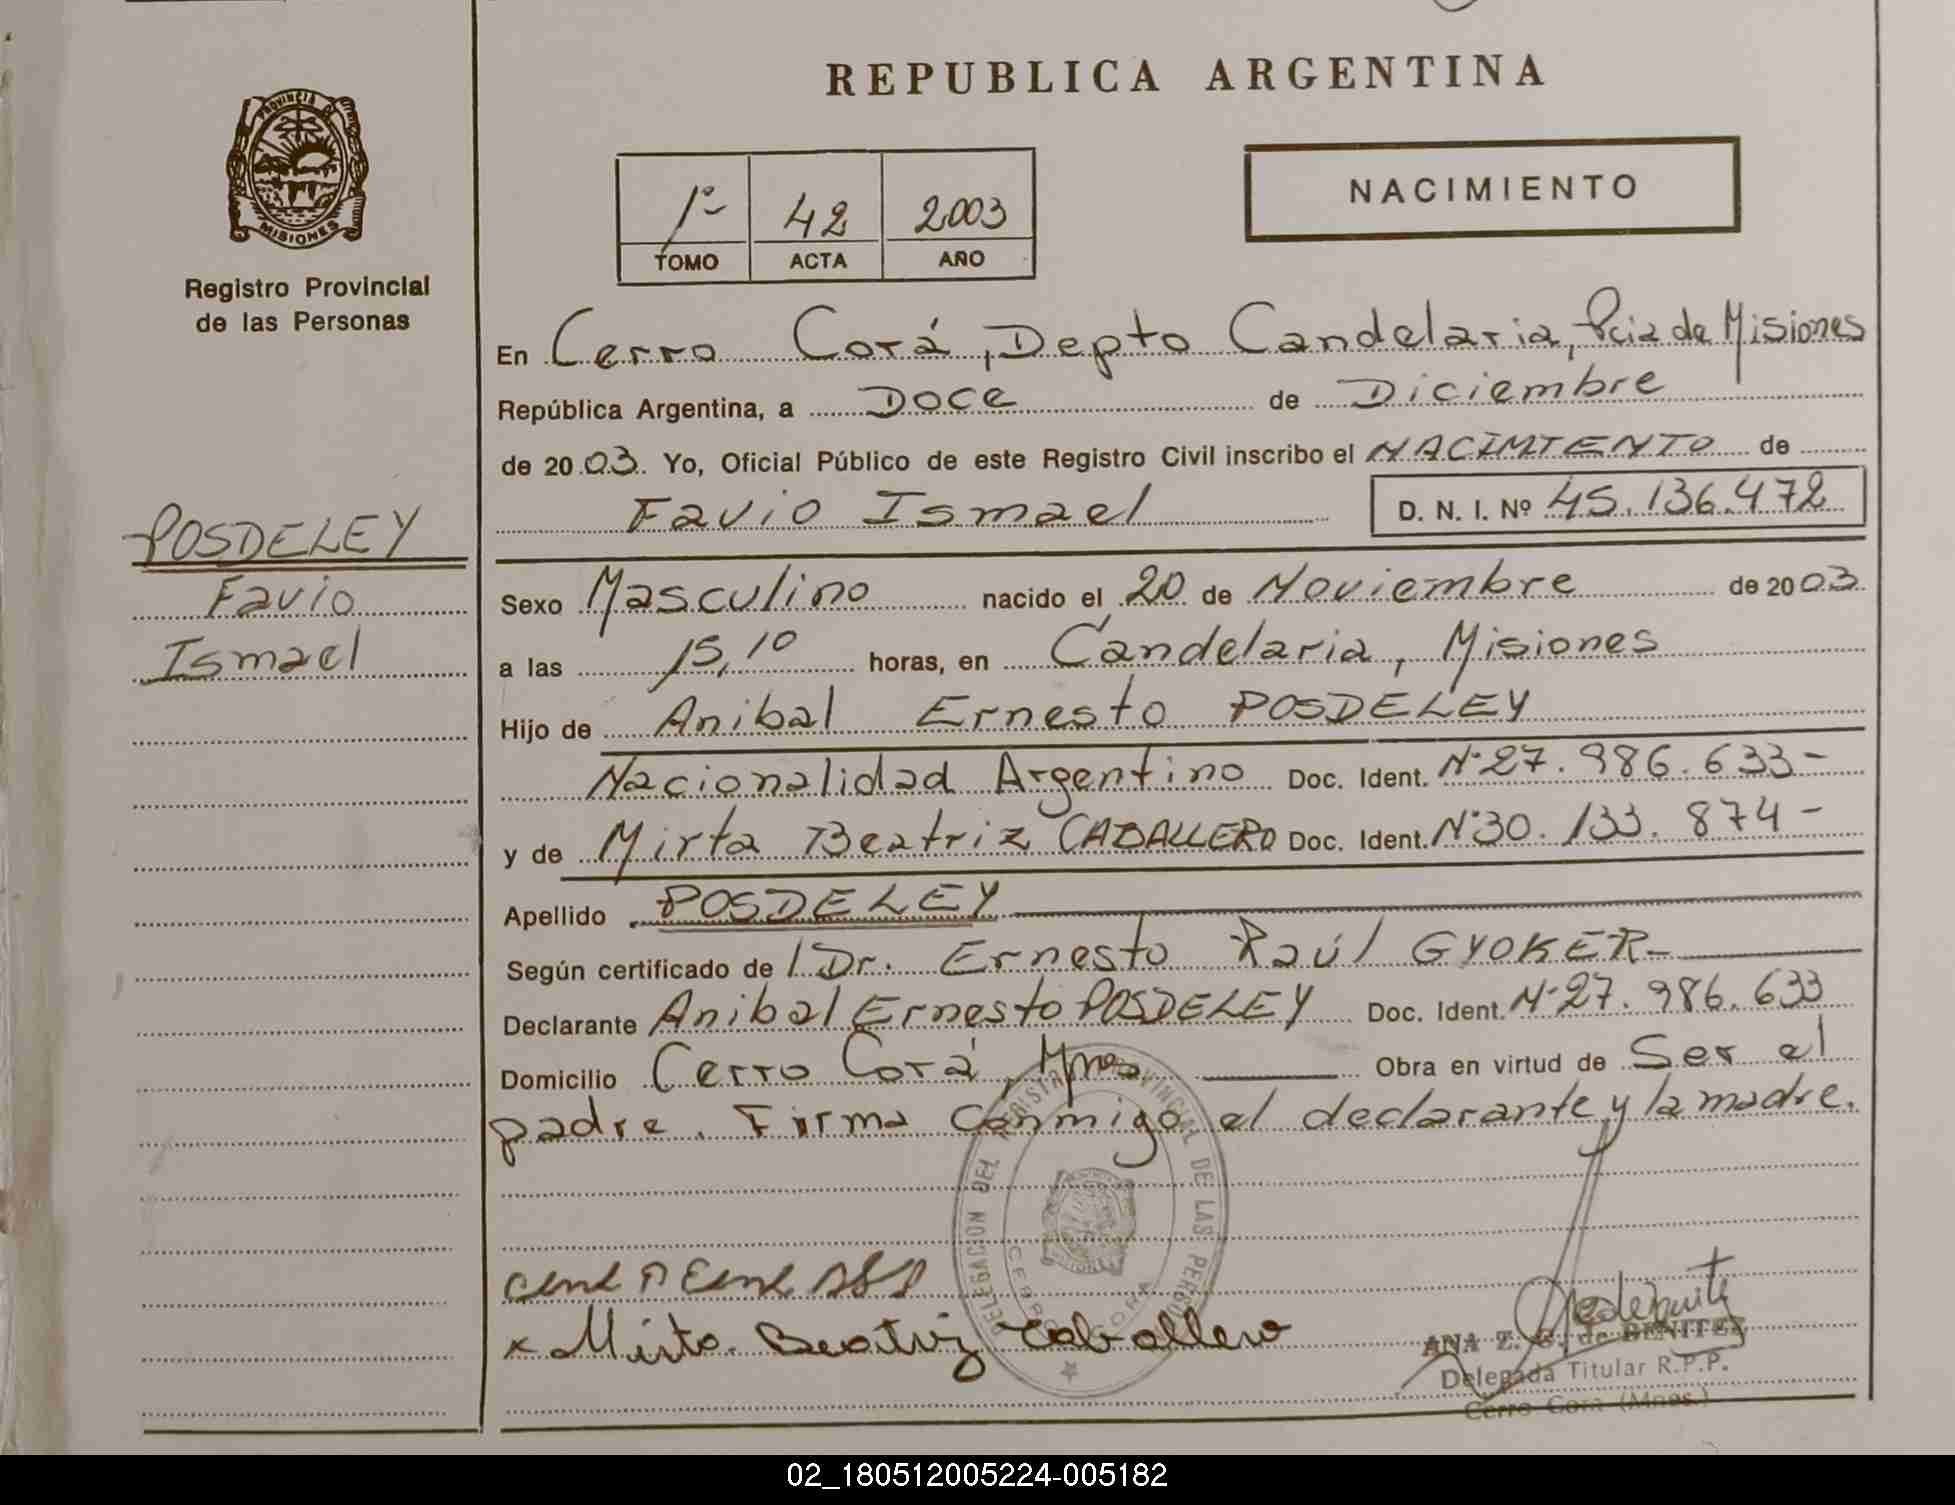 REPUBLICA ARGENTINA
PROVINCIA DE
MISIONES
Registro Provincial
de las Personas
1º 42 2003
TOMO ACTA AÑO
NACIMIENTO
En Cerro Corá, Depto Candelaria, Pcia de Misiones
República Argentina, a Doce de Diciembre
de 2003. Yo, Oficial Público de este Registro Civil inscribo el NACIMIENTO de
Favio Ismael D. N. I. Nº 45.136.472
POSDELEY
Favio
Ismael
Sexo Masculino nacido el 20 de Noviembre de 2003
a las 15,10 horas, en Candelaria, Misiones
Hijo de Anibal Ernesto POSDELEY
Nacionalidad Argentino Doc. Ident. Nº 27.986.633-
y de Mirta Beatriz CABALLERO Doc. Ident. Nº 30.133.874-
Apellido POSDELEY
Según certificado de l Dr. Ernesto Raúl GYOKER-
Declarante Anibal Ernesto POSDELEY Doc. Ident. Nº 27.986.633
Domicilio Cerro Corá, Mnes Obra en virtud de Ser el
padre. Firma Conmigo el declarante y la madre.
DELEGACION DEL REGISTRO PROVINCIAL DE LAS PERSONAS
CERRO CORA
Mirta Beatriz Caballero
ANA Z. G. de BENITEZ
Delegada Titular R.P.P.
Cerro Cora (Mnes.)
02_180512005224-005182